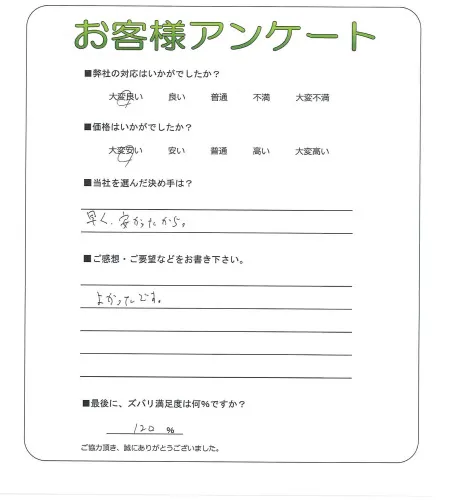 お客様アンケート
■弊社の対応はいかがでしたか？
大変良い 良い 普通 不満 大変不満
■価格はいかがでしたか？
大変安い 安い 普通 高い 大変高い
■当社を選んだ決め手は？
早く、安かったから。
■ご感想・ご要望などをお書き下さい。
よかったです。
■最後に、ズバリ満足度は何％ですか？
120 %
ご協力頂き、誠にありがとうございました。